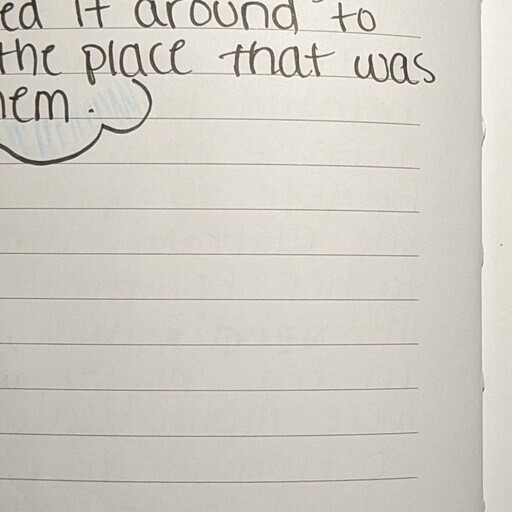 it around to
the place that was